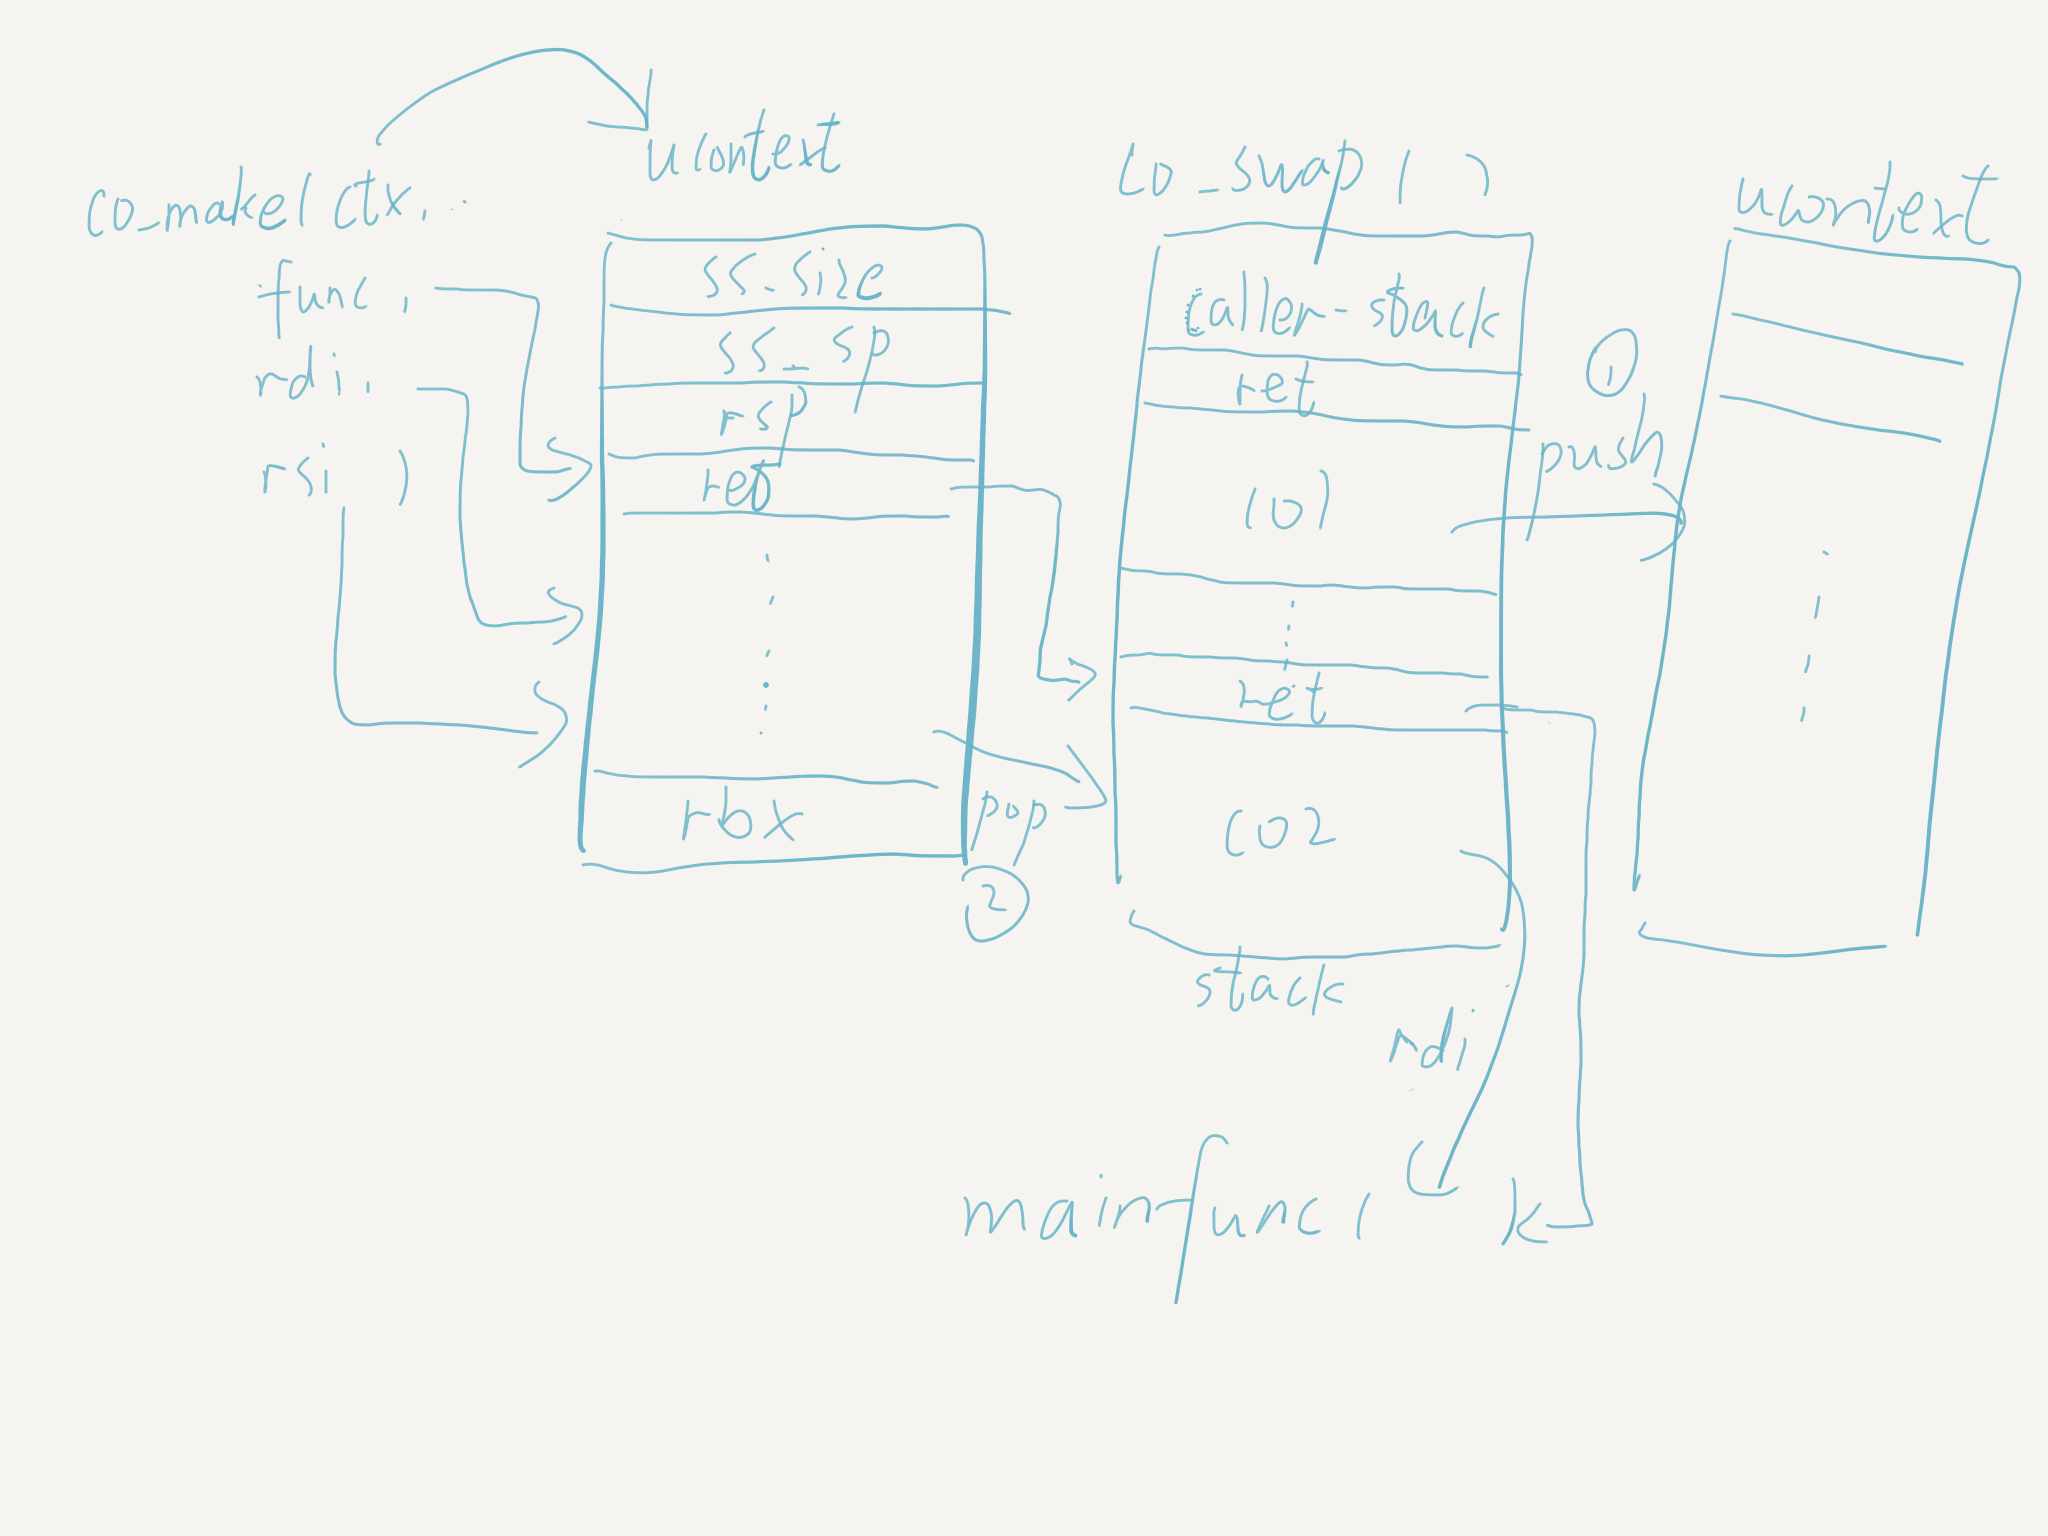 co_make(ctx, ..
func,
rdi,
rsi )
ucontext
ss_size
ss_sp
rsp
ret
rbx
pop
2
co_swap( )
caller-stack
ret
co1
ret
co2
stack
1
push
ucontext
rdi
mainfunc( )